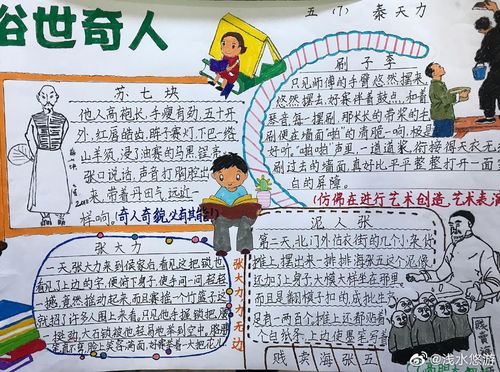 俗世奇人
五(7) 秦天力
苏七块
他人高袍长,手瘦有劲,五十开
外,红唇皓齿,眸子赛灯,下巴一绺
山羊须,浸了油赛的乌黑锃亮
张口说话,声音打胸腔出
来,带着丹田气,远近一
样响。(奇人奇貌,必有其能!)
刷子李
只见师傅的手臂悠然摆来,
悠然摆去,好赛伴着鼓点,和着
琴音,每一摆刷,那长长的带浆的毛
刷便在墙面"啪"的清脆一响,极是
好听。"啪啪"声里,一道道浆,衔接得天衣无
刷过的墙面,真好比平平整整打开一面
白的屏障。
(仿佛在进行艺术创造,艺术表演
张大力
一天,张大力来到侯家后,看见这把锁,也
看见了上边的字,便俯下身子,使手问一问,轻轻
一撼,竟然摇动起来,而且赛摇一个竹篮子,这
就招了许多人围上来看。只见他手握锁把,腰
一挺劲,大石锁被他轻易地举到空中,胳膊
笑容满面,好赛举着一大把花儿
张大力力大无边
泥人张
第二天,北门外估衣街的几个小杂货
摊上,摆出来一排排海张五这个泥像,
还加了个身子,大模大样坐在那里。
而且是翻模子扣的,成批生产
足有一两百个。摊上还都贴着
个白纸条,上边使墨笔写着
贱卖海张五
贱卖海
@浅水悠游